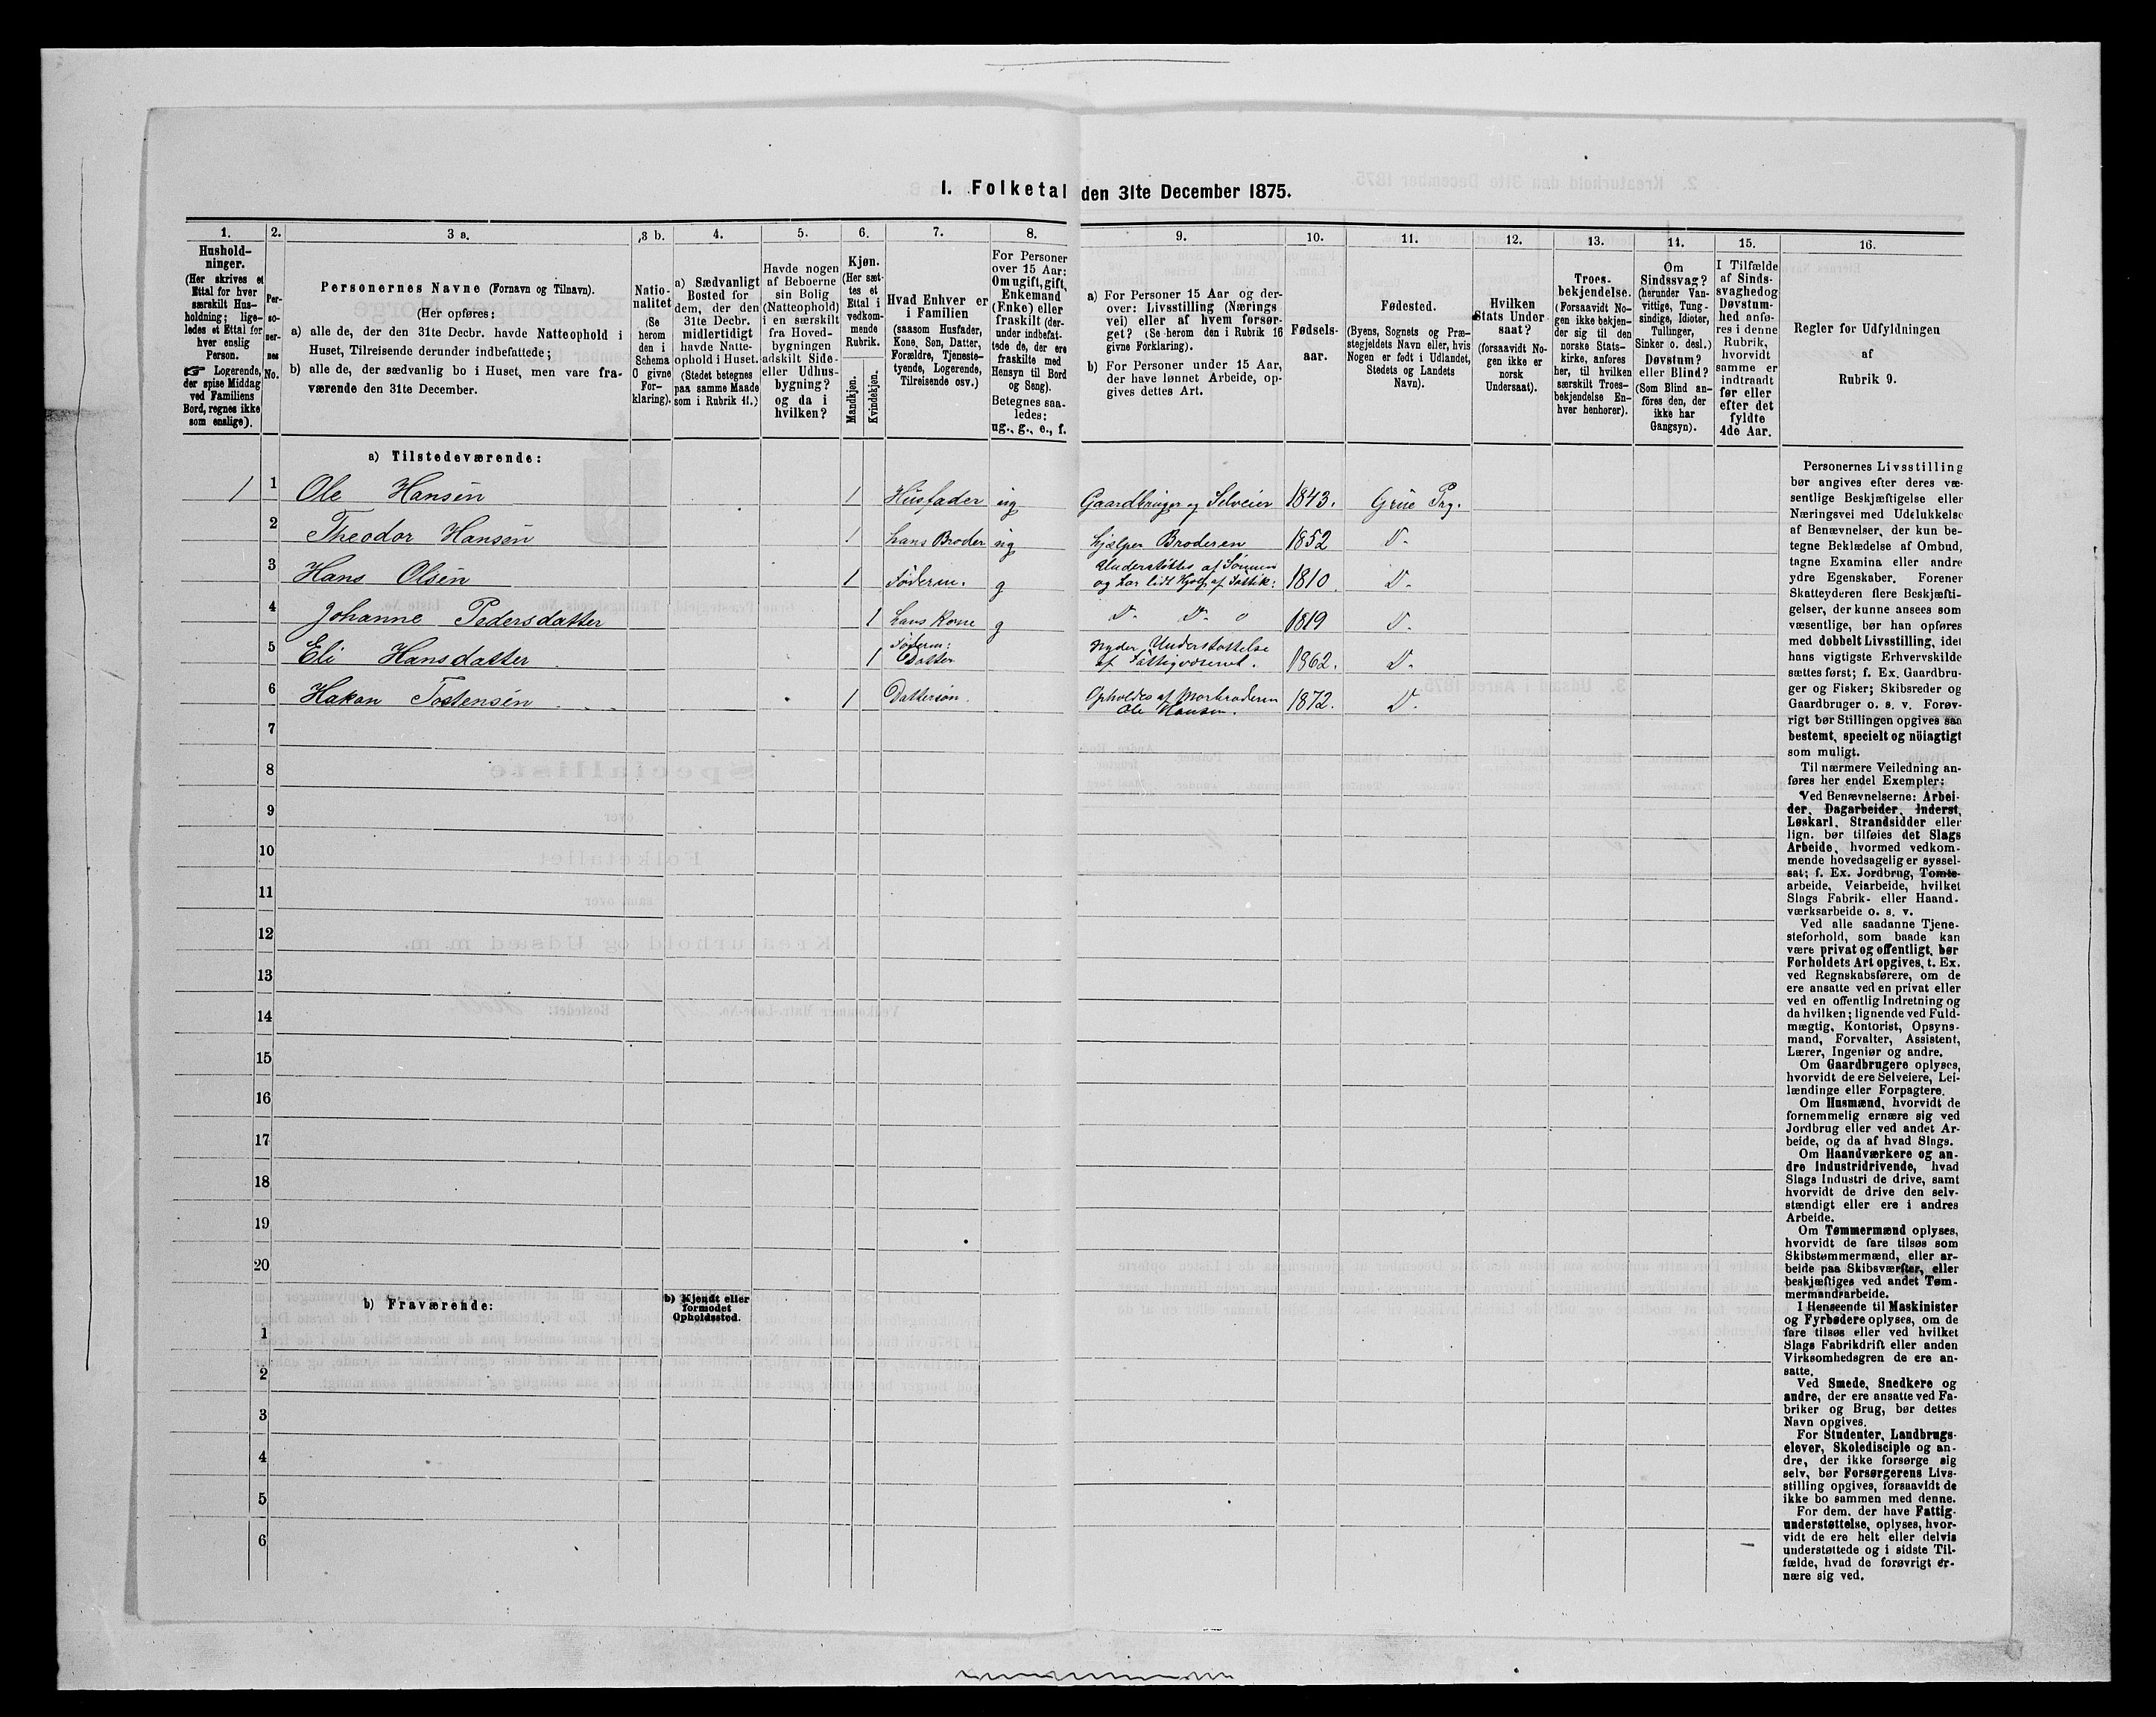 I. Folketal den 31te December 1875.
1. 2. 3 a. 3 b. 4. 5. 6. 7. 8. 9. 10. 11. 12. 13. 14. 15. 16.
Hushold-
ninger.
(Her skrives et
Ettal for hver
særskilt Hus-
holdning; lige-
ledes et Ettal for
hver enslig
Person.
☞ Logerende,
der spise Middag
ved Familiens
Bord, regnes ikke
som enslige).
Per-
so-
ner-
nes
No.
Personernes Navne (Fornavn og Tilnavn).
(Her opføres:
a) alle de, der den 31te Decbr. havde Natteophold i
Huset, Tilreisende derunder indbefattede;
b) alle de, der sædvanlig bo i Huset, men vare fra-
værende den 31te December.
Natio-
nalitet
(Se
herom
den i
Schema
O givne
For-
klaring).
a) Sædvanligt
Bosted for
dem, der den
31te Decbr.
midlertidigt
havde Natte-
ophold i Huset.
(Stedet betegnes
paa samme Maade
som i Rubrik 11.)
Havde nogen
af Beboerne
sin Bolig
(Natteophold)
i en særskilt
fra Hoved-
bygningen
adskilt Side-
eller Udhus-
bygning?
og da i
hvilken?
Kjøn.
(Her sæt-
tes et
Ettal i
vedkom-
mende
Rubrik.
Mandkjøn.
Kvindekjøn.
Hvad Enhver er
i Familien
(saasom Husfader,
Kone, Søn, Datter,
Forældre, Tjeneste-
tyende, Logerende,
Tilreisende osv.)
For Personer
over 15 Aar:
Om ugift, gift,
Enkemand
(Enke) eller
fraskilt (der-
under indbefat-
tede de, der ere
fraskilte med
Hensyn til Bord
og Seng).
Betegnes saa-
ledes:
ug., g., e., f.
a) For Personer 15 Aar og der-
over: Livsstilling (Nærings
vei) eller af hvem forsør-
get? (Se herom den i Rubrik 16
givne Forklaring).
b) For Personer under 15 Aar,
der have lønnet Arbeide, op-
gives dettes Art.
Fødsels-
aar.
Fødested.
(Byens, Sognets og Præ-
stegjeldets Navn eller, hvis
Nogen er født i Udlandet,
Stedets og Landets
Navn).
Hvilken
Stats Under
saat?
(forsaavidt No-
gen ikke er
norsk
Undersaat).
Troes-
bekjendelse.
(Forsaavidt No-
gen ikke bekjen-
der sig til den
norske Stats-
kirke, anføres
her, til hvilken
særskilt Troes-
bekjendelse En-
hver henhører).
Om
Sindssvag?
(herunder Van-
vittige, Tung-
sindige, Idioter,
Tullinger,
Sinker o. desl.)
Døvstum?
eller Blind?
(Som Blind an-
føres den, der
ikke har
Gangsyn).
I Tilfælde
af Sinds-
svaghedog
Døvstum-
hed anfø-
res i denne
Rubrik,
hvorvidt
samme er
indtraadt
før eller
efter det
fyldte
4de Aar.
Regler for Udfyldningen
af
Rubrik 9.
a) Tilstedeværende:
1 1 Ole Hansen 1 Husfader ug Gaardbruger og Selveier 1843. Grue Prg.
2 Theodor Hansen 1 hans Broder ug hjælper Broderen 1852 D-
3 Hans Olsen 1 Føderm. g Understøttes af Sønnen
og har lidt Hjælp af Fattik: 1810 D-
4 Johanne Pedersdatter 1 hans Kone g D- D- 1819 D-
5 Eli Hansdatter 1 Føderm:
Datter nyder Understøttelse
af Fattigvæsenet. 1862. D-
6 Hakan Tostensen 1 Dattersøn. Opholdes af Morbroderen
Ole Hansen. 1872. D-
7
8
9
10
11
12
13
14
15
16
17
18
19
20
b) Fraværende:
b) Kjendt eller
formodet
Opholdssted.
1
2
3
4
5
6
Personernes Livsstilling
bør angives efter deres væ-
sentlige Beskjæftigelse eller
Næringsvei med Udelukkelse
af Benævnelser, der kun be-
tegne Beklædelse af Ombud,
tagne Examina eller andre
ydre Egenskaber. Forener
Skatteyderen flere Beskjæfti-
gelser, der kunne ansees som
væsentlige, bør han opføres
med dobbelt Livsstilling, idet
hans vigtigste Erhvervskilde
sættes først; f. Ex. Gaardbru-
ger og Fisker; Skibsreder og
Gaardbruger o. s. v. Forøv-
rigt bør Stillingen opgives saa
bestemt, specielt og nöiagtigt
som muligt.
Til nærmere Veiledning an-
føres her endel Exempler:
Ved Benævnelserne: Arbei-
der, Dagarbeider, Inderst,
Løskarl, Strandsidder eller
lign. bør tilføies det Slags
Arbeide, hvormed vedkom-
mende hovedsagelig er syssel-
sat; f. Ex. Jordbrug, Tomte-
arbeide, Veiarbeide, hvilket
Slags Fabrik- eller Haand-
værksarbeide o. s. v.
Ved alle saadanne Tjene-
steforhold, som baade kan
være privat og offentligt, bør
Forholdets Art opgives, t. Ex.
ved Regnskabsførere, om de
ere ansatte ved en privat eller
ved en offentlig Indretning og
da hvilken; lignende ved Fuld-
mægtig, Kontorist, Opsyns-
mand, Forvalter, Assistent,
Lærer, Ingeniør og andre.
Om Gaardbrugere oplyses,
hvorvidt de ere Selveiere, Lei-
lændinge eller Forpagtere.
Om Husmænd, hvorvidt de
fornemmelig ernære sig ved
Jordbrug eller ved andet Ar-
beide, og da af hvad Slags.
Om Haandværkere og an-
dre Industridrivende, hvad
Slags Industri de drive, samt
hvorvidt de drive den selv-
stændigt eller ere i andres
Arbeide.
Om Tømmermænd oplyses,
hvorvidt de fare tilsøs som
Skibstømmermænd, eller ar-
beide paa Skibsværfter, eller
beskjæftiges ved andet Tøm-
mermandsarbeide.
I Henseende til Maskinister
og Fyrbødere oplyses, om de
fare tilsøs eller ved hvilket
Slags Fabrikdrift eller anden
Virksomhedsgren de ere an-
satte.
Ved Smede, Snedkere og
andre, der ere ansatte ved Fa-
briker og Brug, bør dettes
Navn opgives.
For Studenter, Landbrugs-
elever, Skoledisciple og an-
dre, der ikke forsørge sig
selv, bør Forsørgerens Livs-
stilling opgives, forsaavidt de
ikke bo sammen med denne.
For dem, der have Fattig-
understøttelse, oplyses, hvor-
vidt de ere helt eller delvis
understøttede og i sidste Til-
fælde, hvad de forøvrigt er-
nære sig ved.